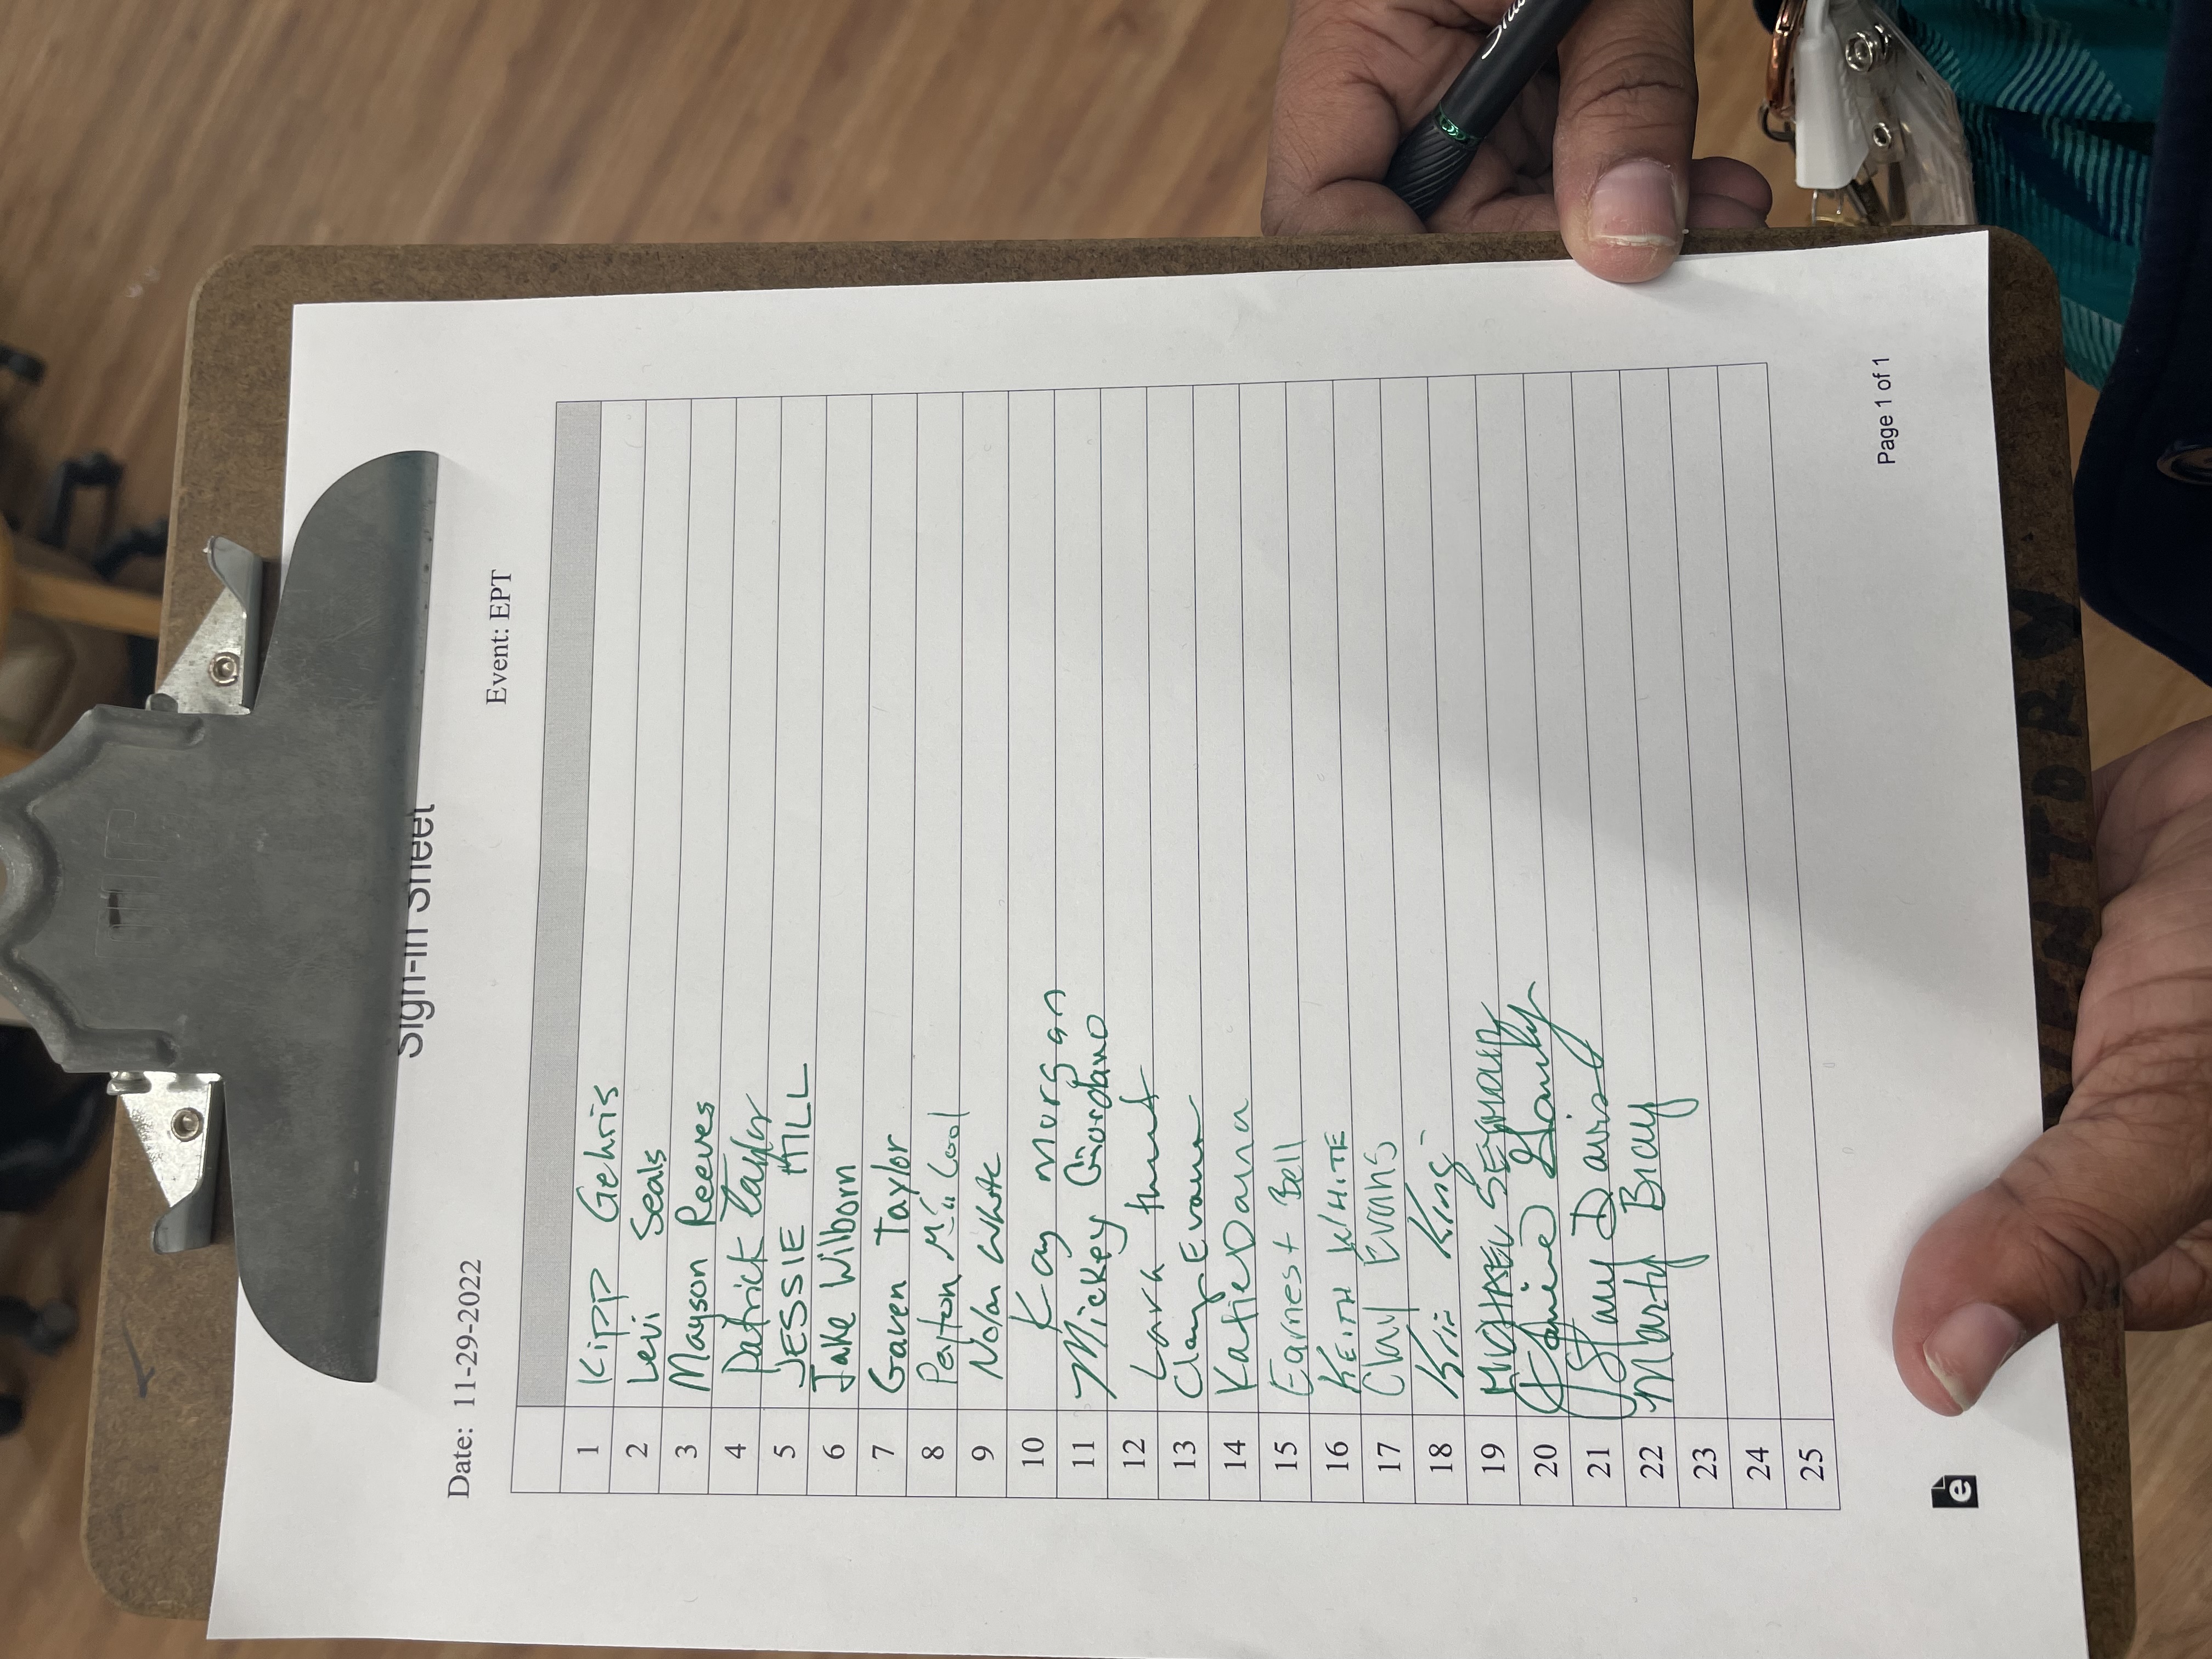 Sign-In Sheet
Date: 11-29-2022 Event: EPT
1 Kipp Gehris
2 Levi Seals
3 Mayson Reeves
4 Patrick Taylor
5 JESSIE HILL
6 Jake Wilborn
7 Gaven Taylor
8 Peyton McCool
9 Nolan White
10 Kay Morgan
11 Mickey Giordano
12 Lark Hunt
13 Clay Evans
14 Katie Dana
15 Earnest Bell
16 KEITH WHITE
17 Clay Evans
18 King
19 MICHAEL SEYMOUR
20
21 Davis
22 Marty Bray
23
24
25
e
Page 1 of 1